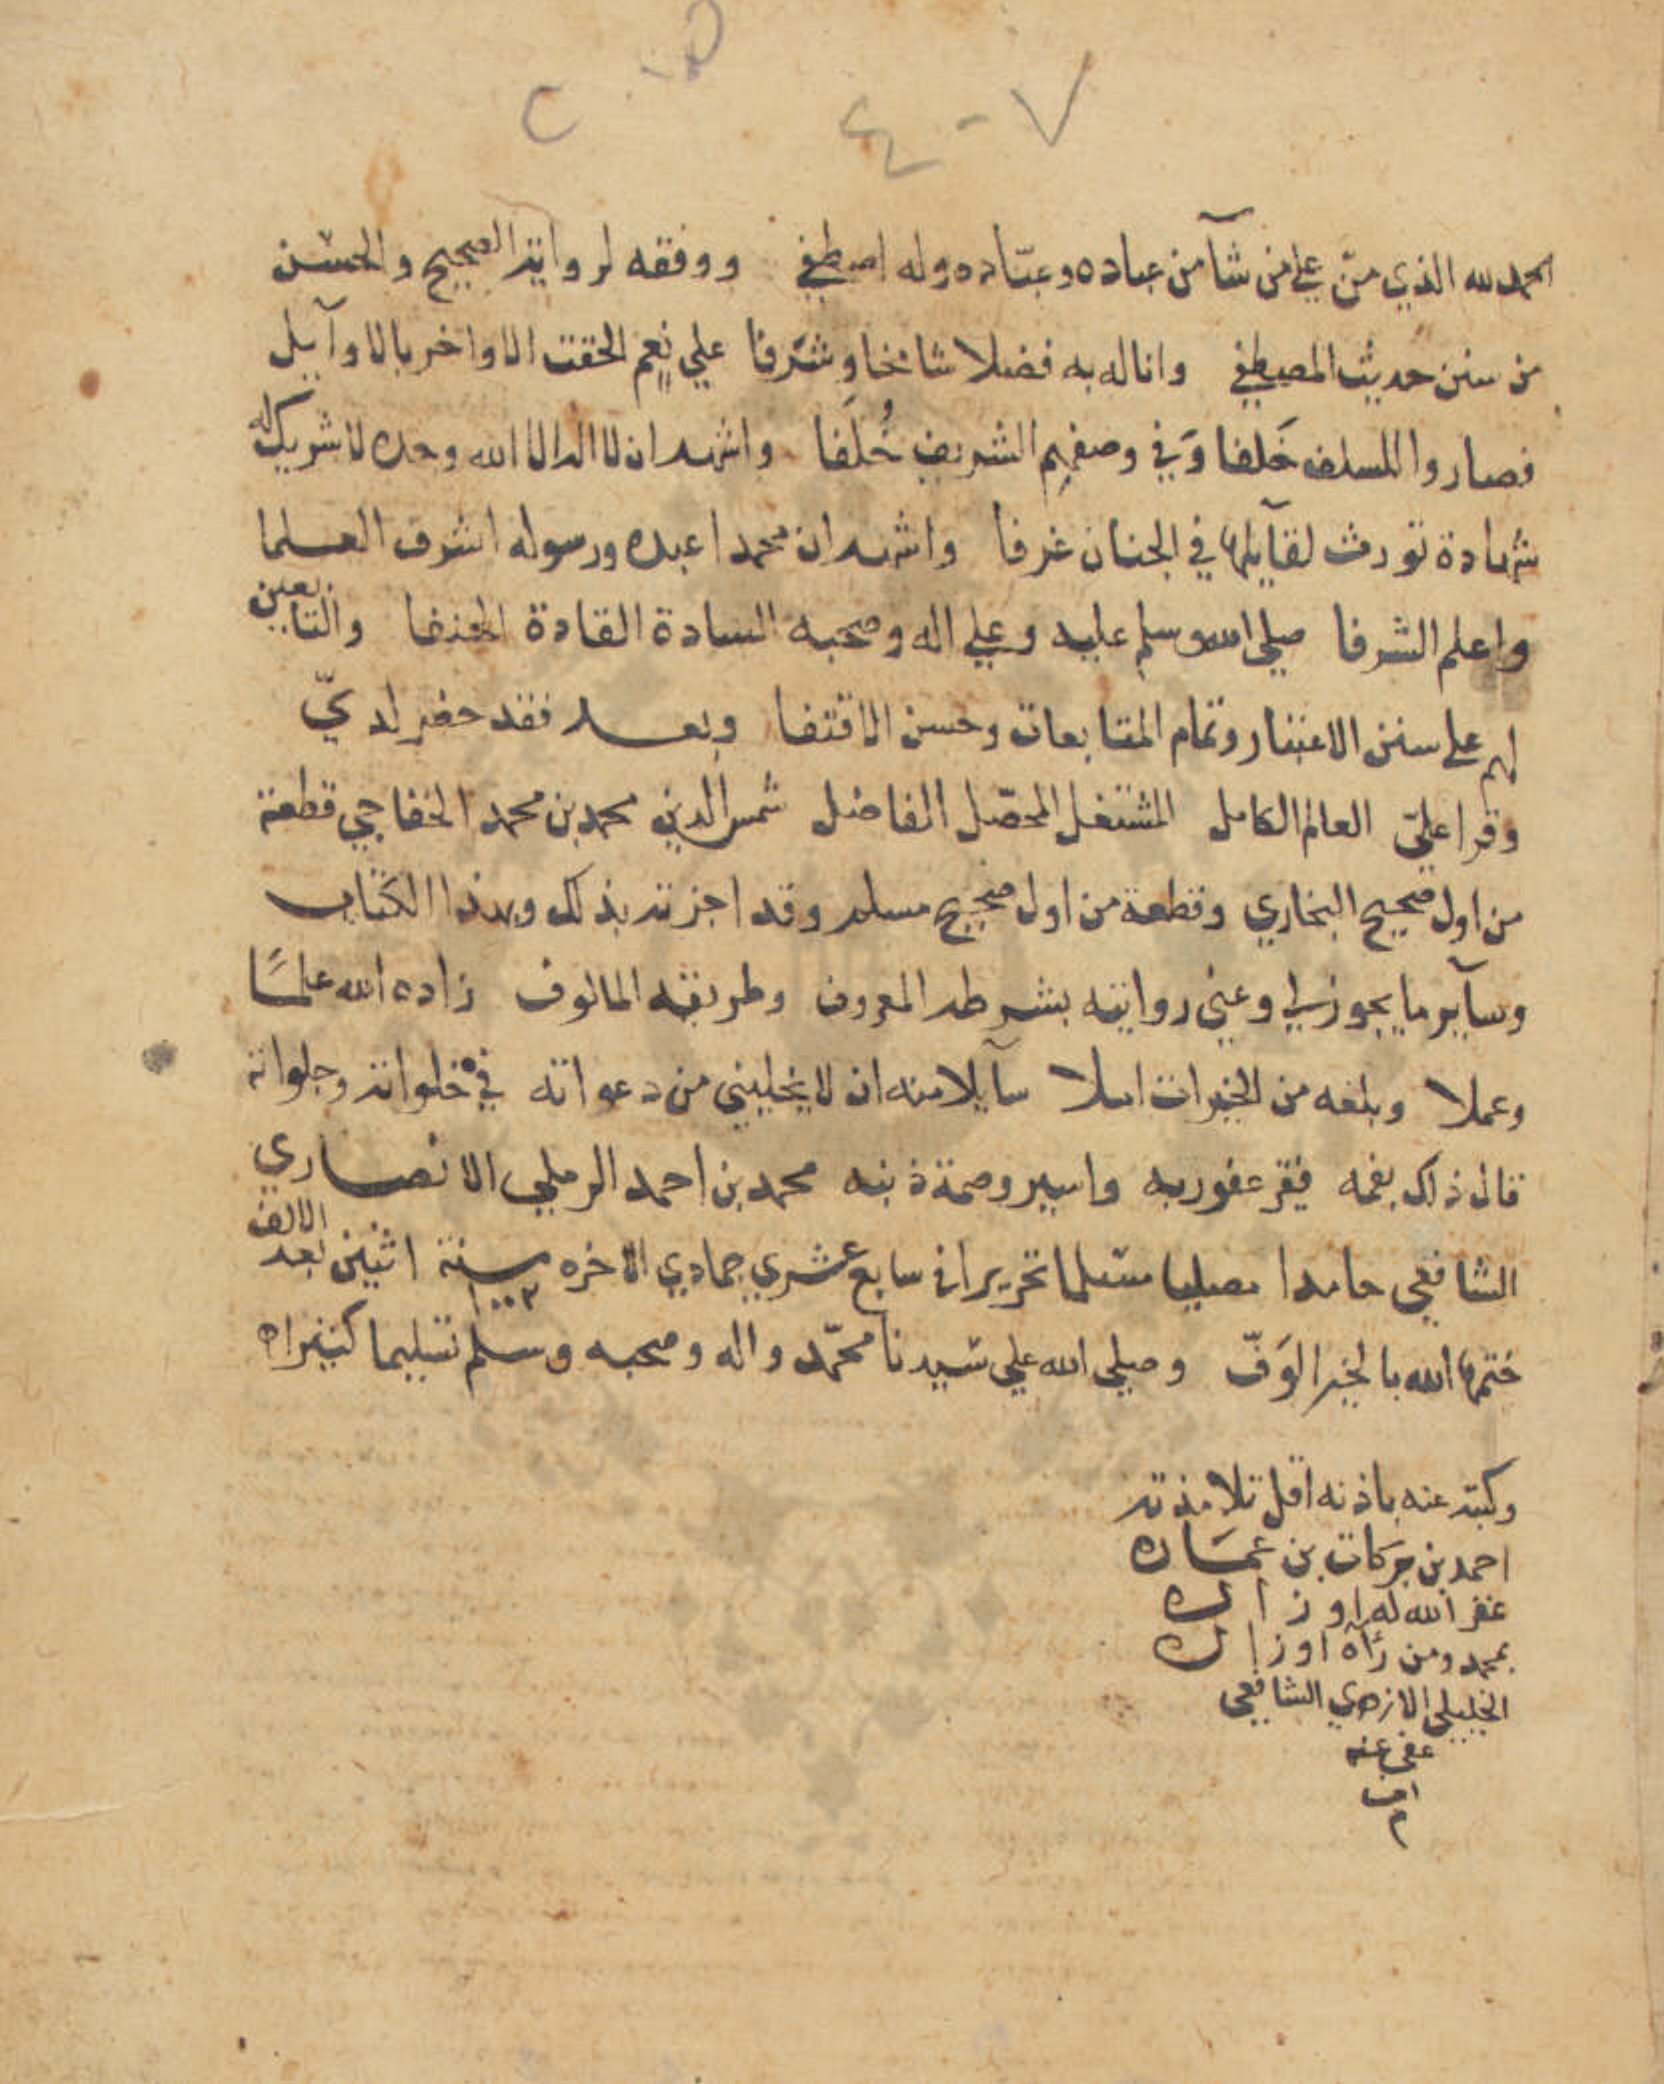 ٧ - ٤
الحمد لله الذي منّ علي من شآ من عباده وعبّاده وله اصطفي ووفقه لرواية الصحيح والحسن
من سنن حديث المصطفي واناله به فضلا شامخا وشرفا علي نعم الحقت الاواخر بالاوآيل
فصاروا للسلف خَلفا وَفي وصفهم الشريف خُلَفا واشهد ان لا اله الا الله وحده لا شريك له
شهادة تورث لقآيلها في الجنان غرفا واشهد ان محمدا عبده ورسوله اشرف العلما
واعلم الشرفا صلي الله وسلم عليه وعلي اله وصحبه السادة القادة الحنفا والتابعين
لهم علي سنن الاعتنا وتمام المتابعات وحسن الاقتفا وبعد فقد حضر لديّ
وقرا عليّ العالم الكامل المشتغل المحصّل الفاضل شمس الدين محمد بن محمد الخفاجي قطعة
من اول صحيح البخاري وقطعة من اول صحيح مسلم وقد اجزته بذلك وبهذا الكتاب
وسآير ما يجوز لي وعني روايته بشرطه المعروف وطريقه المالوف زاده الله علمًا
وعملا وبلغه من الخيرات املا سآيلا منه ان لا يخليني من دعواته في خلواته وجلواته
قال ذلك بفمه فقير عفو ربه واسير وصمة ذنبه محمد بن احمد الرملي الانصاري
الشافعي حامدا مصليا مسلما تحريرا في سابع عشري جمادي الاخره سنة اثنين بعد الالف
١٠٠٢
ختمها الله بالخير الوَفّ وصلي الله علي سيدنا محمّد واله وصحبه وسلم تسليما كثيرا
وكتبه عنه باذنه اقل تلامذته
احمد بن بركات بن
غفر الله له اوزاره
بمحمد ومن زاره اوزاره
الخليلي الازهري الشافعي
عفي عنه